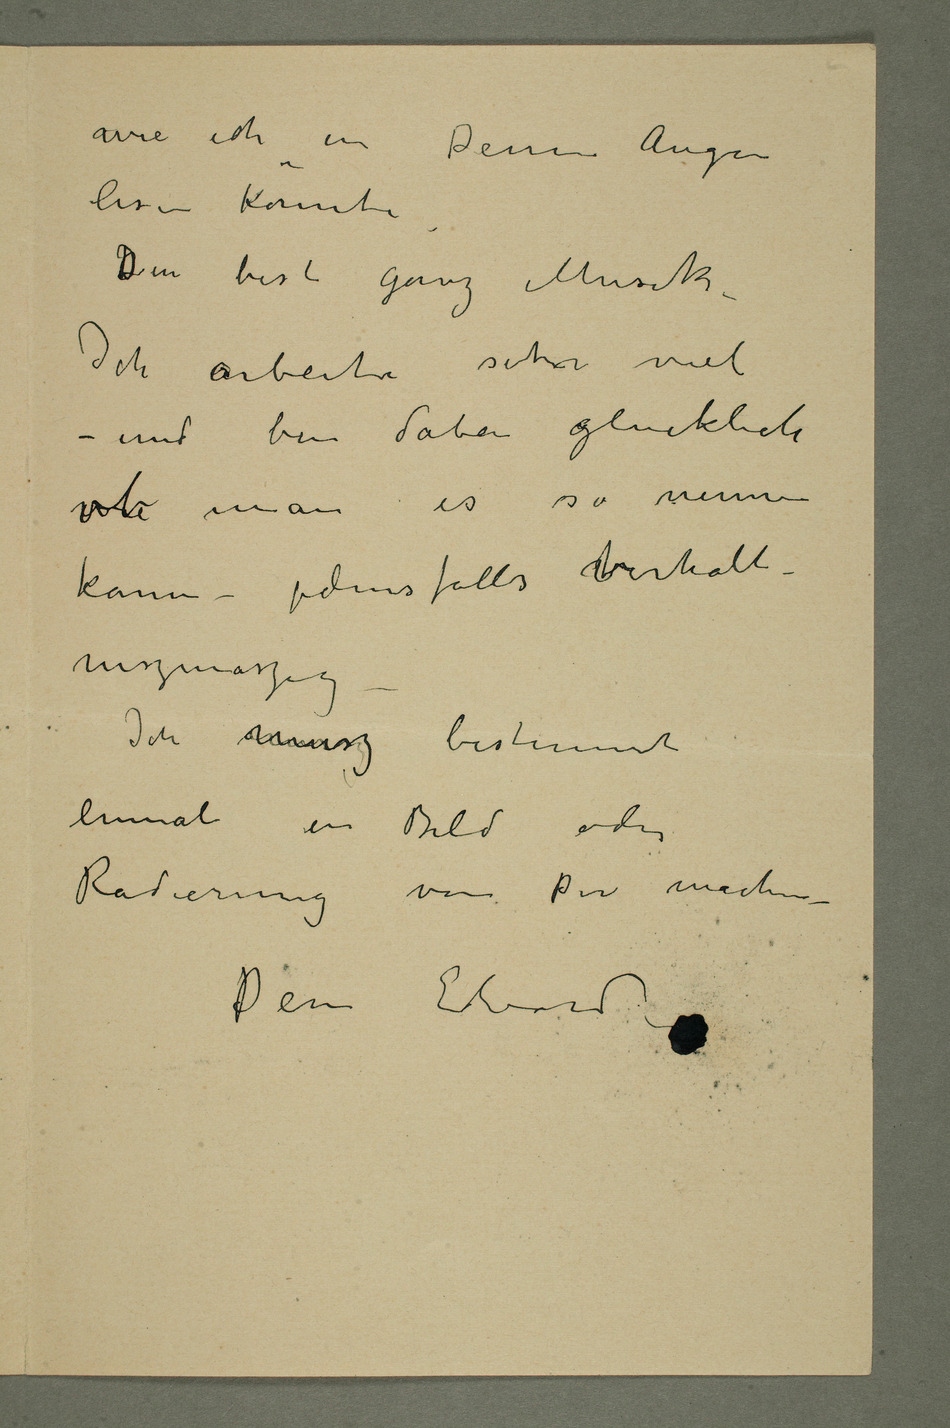 wie ich in Deinen Augen
lesen könnte
Du bist ganz Musik –
Ich arbeite sehr viel
– und bin dabei glücklich
man es so nennen
kann – jedensfalls verhält–
niszmäszig –
Ich musz bestimmt
einmal ein Bild oder
Radierung von Dir machen –
Dein Edvard